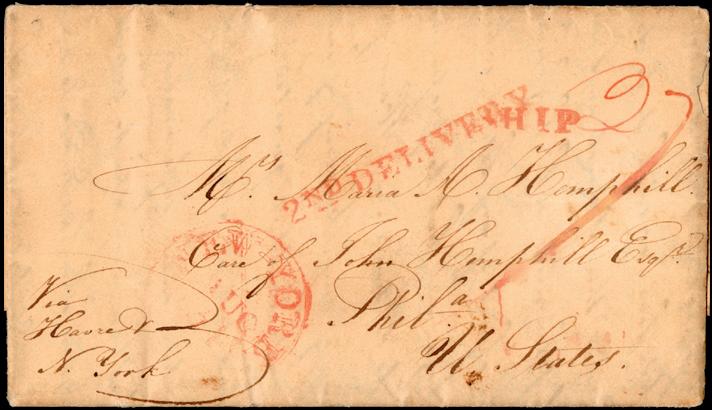 SHIP
2ND DELIVERY
Mrs. Maria A. Hemphill.
Care of John Hemphill Esqr.
Phila
U. States.
NEW YORK
AUG
Via
Havre &
N. York